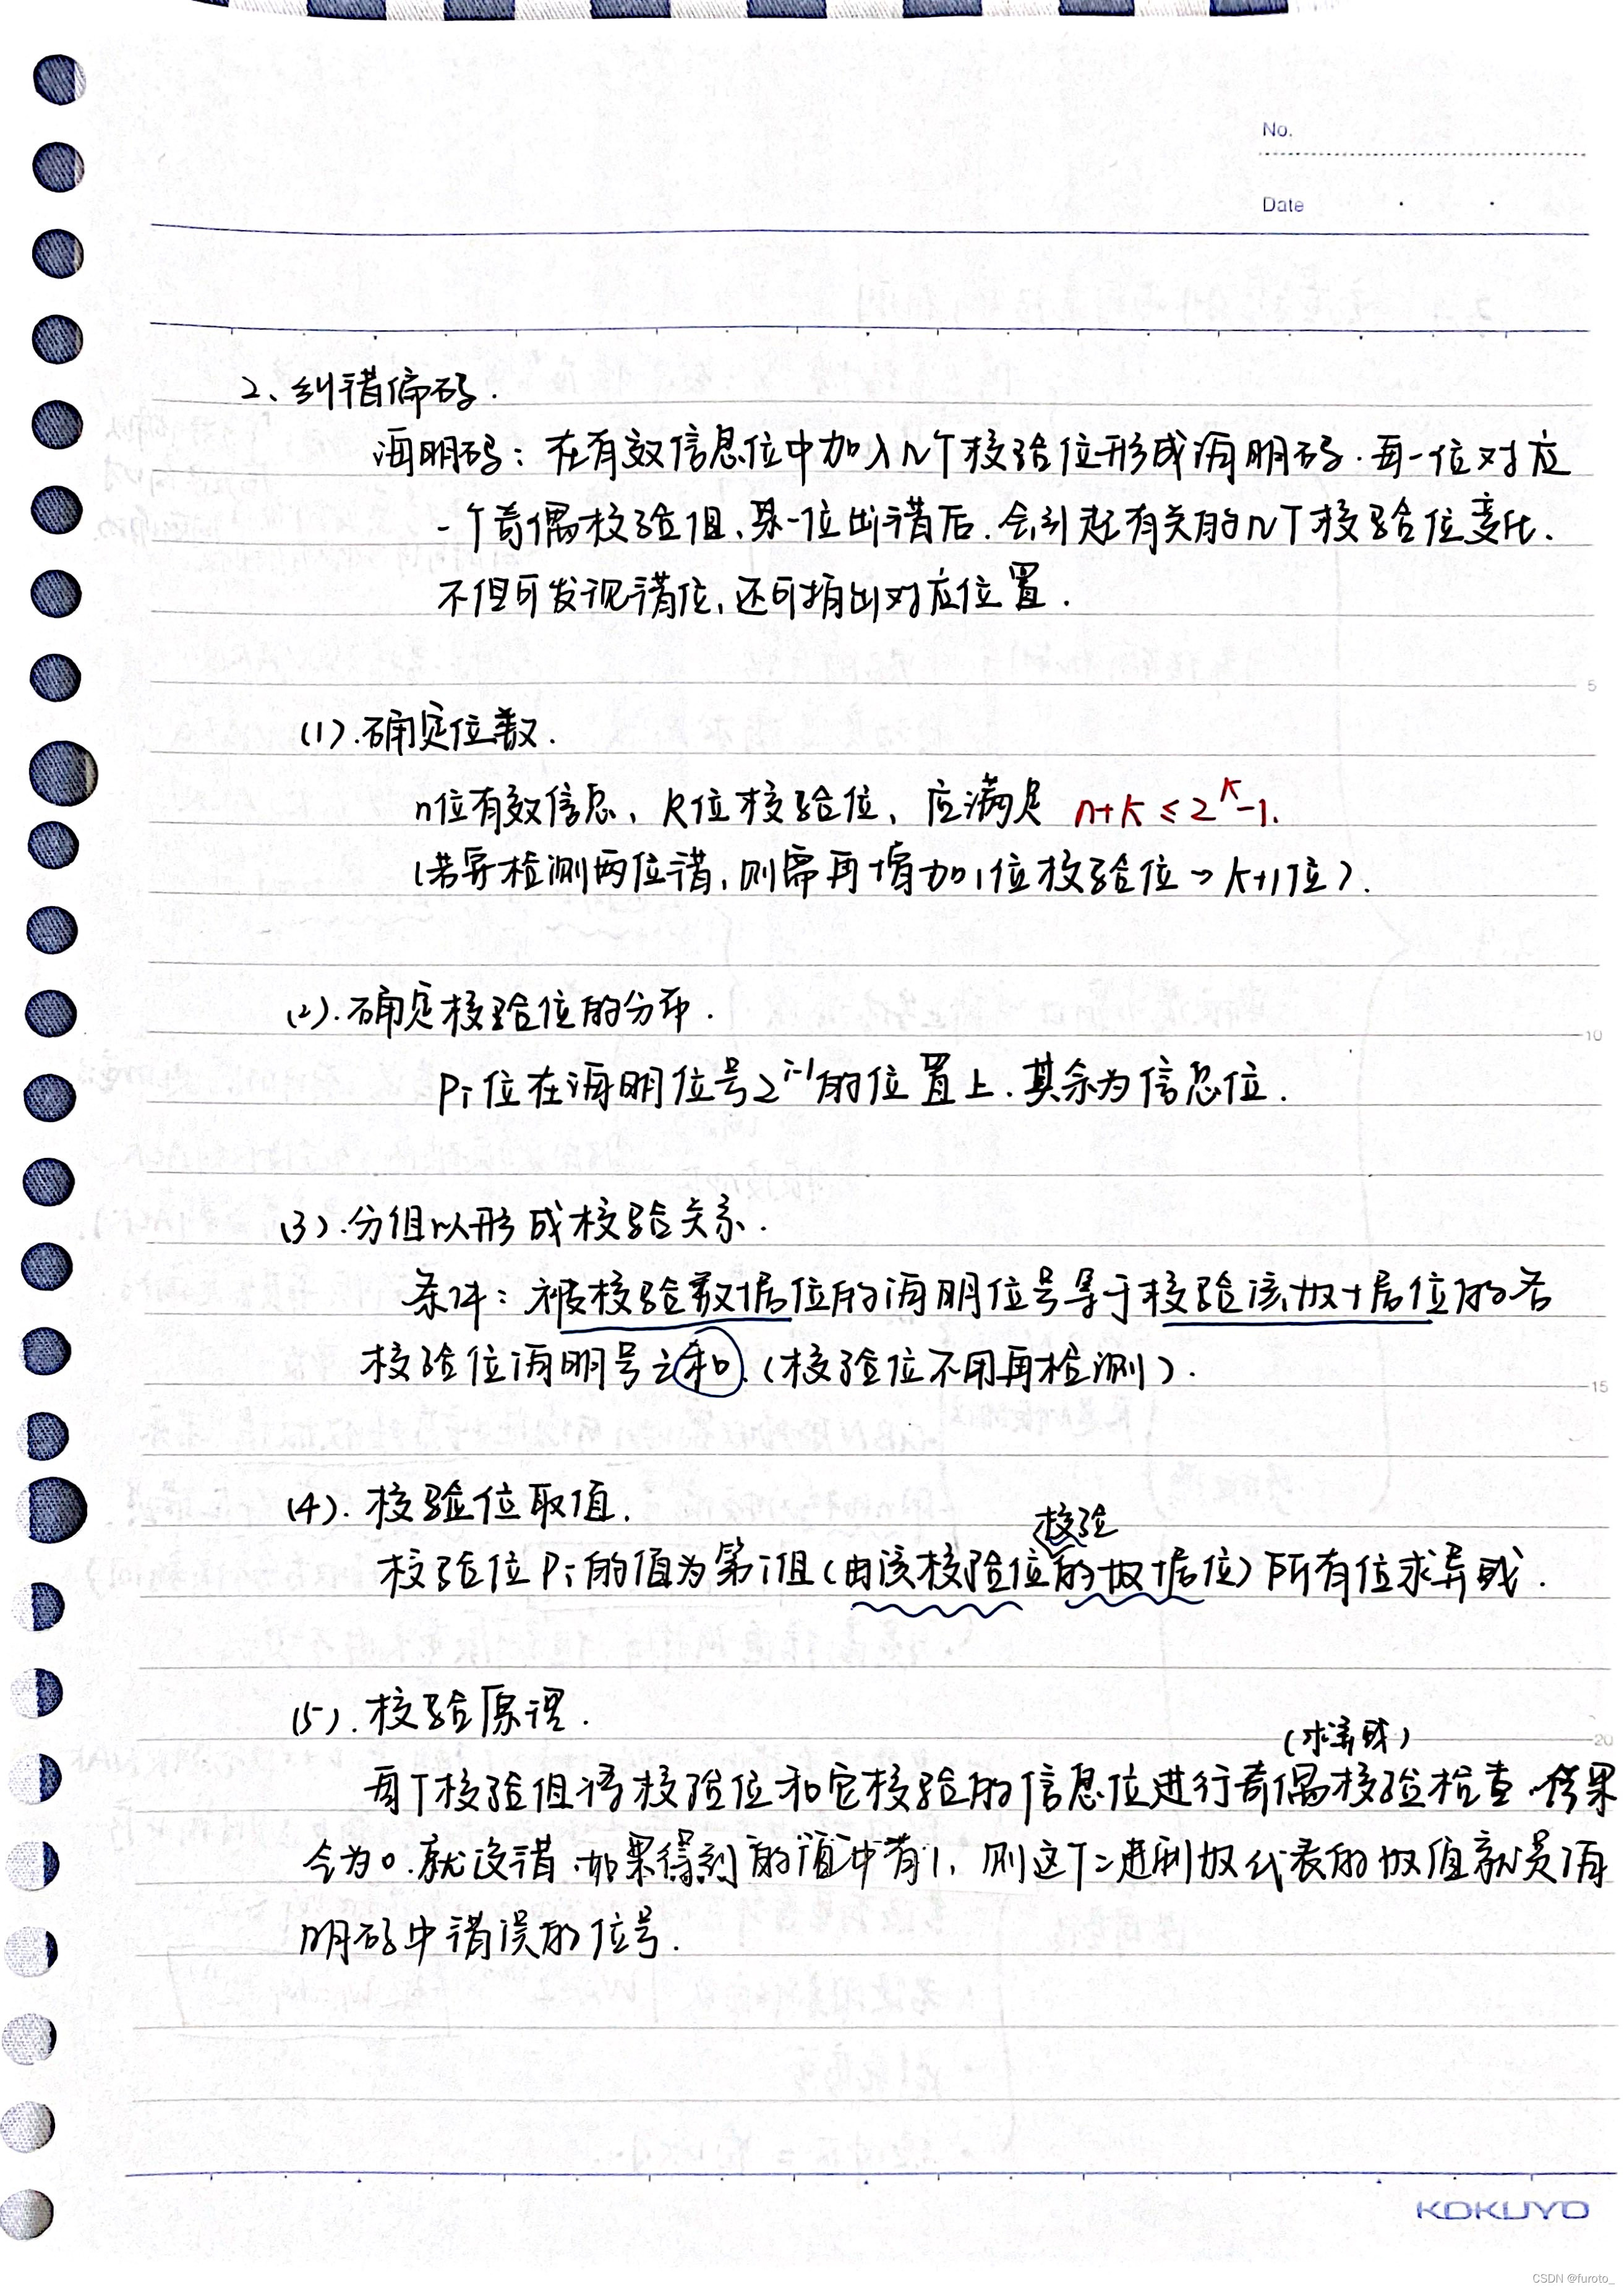 No.
Date
2、纠错编码.
海明码：在有效信息位中加入几个校验位形成海明码.每一位对应
一个奇偶校验组、某一位出错后.会引起有关的几个校验位变化.
不但可发现错位,还可指出对应位置.
5
(1).确定位数.
n位有效信息、K位校验位、应满足 n+k≤2^K-1.
(若要检测两位错,则需再增加1位校验位→k+1位).
(2).确定校验位的分布.
10
Pi位在海明位号2^i-1的位置上.其余为信息位.
(3).分组以形成校验关系.
条件：被校验数据位的海明位号等于校验该数据位的各
校验位海明号之和.(校验位不用再检测).
15
(4).校验位取值.
校验
校验位Pi的值为第i组(由该校验位的数据位)所有位求异或.
(5).校验原理.
(求异或)
20
每个校验组将校验位和它校验的信息位进行奇偶校验检查.结果
全为0.就没错.如果得到的值中有1、则这个二进制数代表的数值就是海
明码中错误的位号.
KOKUYO
CSDN @furoto_